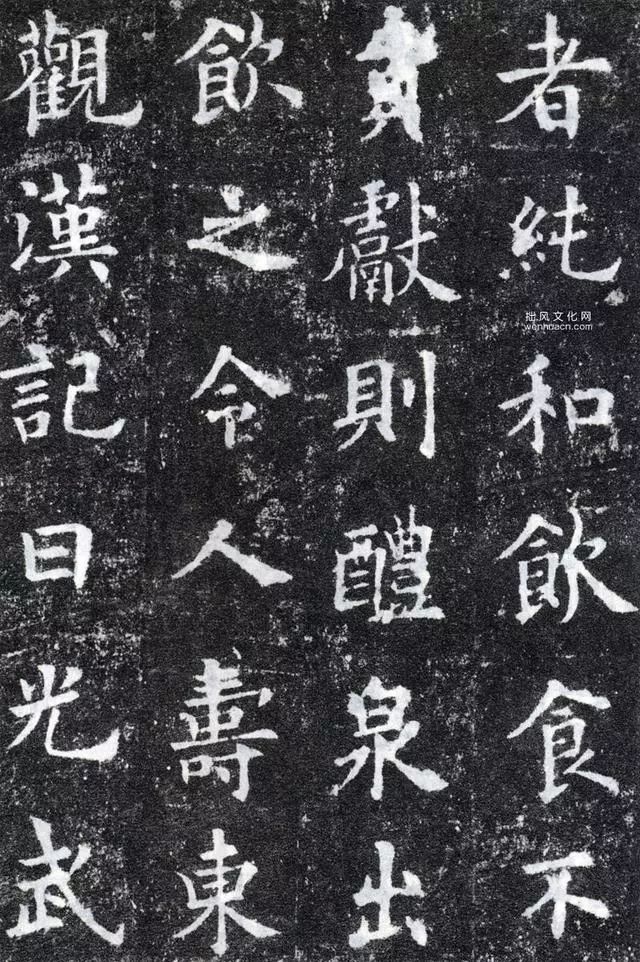 者純和飲食不
貢獻則醴泉出
飲之令人壽東
觀漢記曰光武
拙风文化网
wenhuacn.com